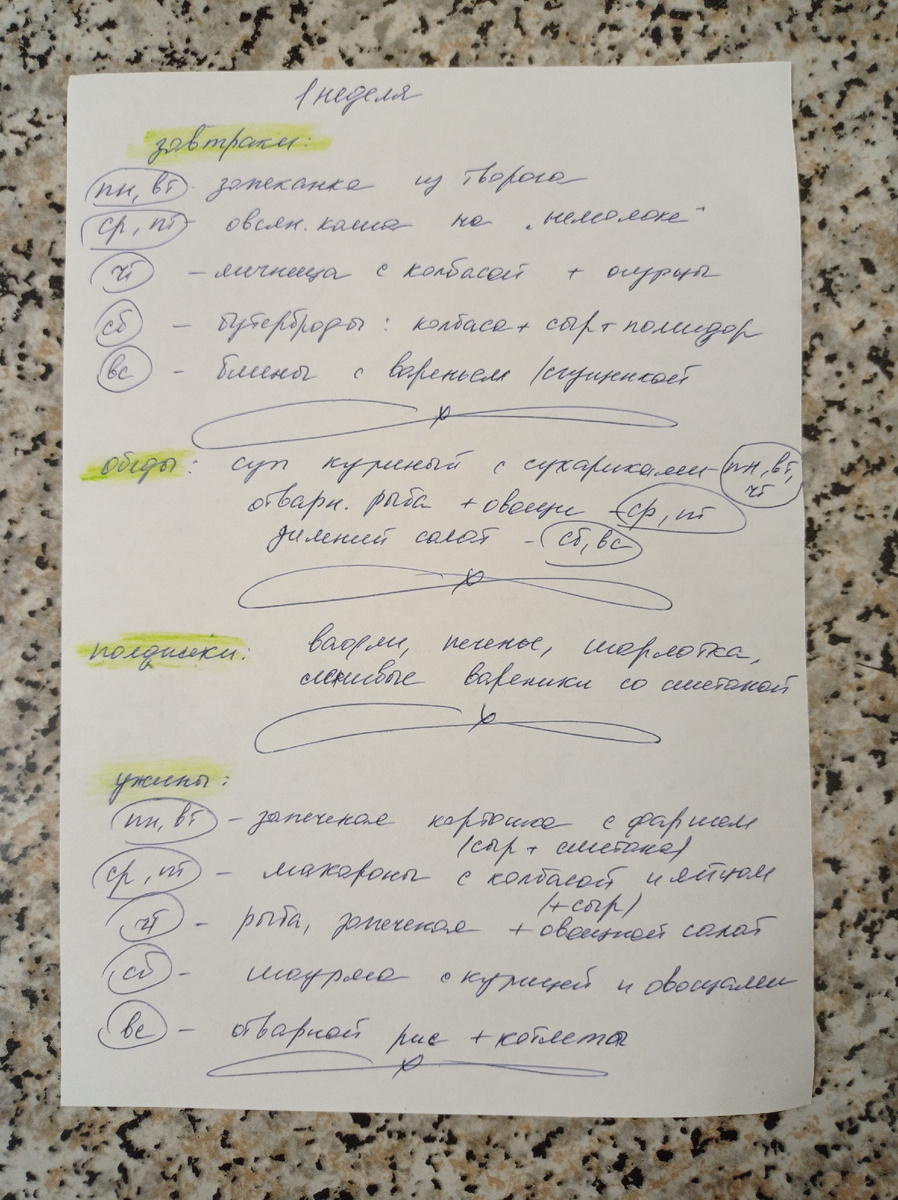 1 неделя
завтраки:
пн, вт - запеканка из творога
ср, пт - овсян. каша на "немолоке"
чт - яичница с колбасой + огурцы
сб - бутерброды: колбаса + сыр + помидор
вс - блины с вареньем /сгущенкой
обеды: суп куриный с сухариками - пн, вт,
чт
отварн. рыба + овощи - ср, пт
зимний салат - сб, вс
полдники: вафли, печенье, шарлотка,
ленивые вареники со сметаной
ужины:
пн, вт - запеченая картошка с фаршем
(сыр + сметана)
ср, пт - макароны с колбасой и яйцом
(+ сыр)
чт - рыба, запеченая + овощной салат
сб - шаурма с курицей и овощами
вс - отварной рис + котлета